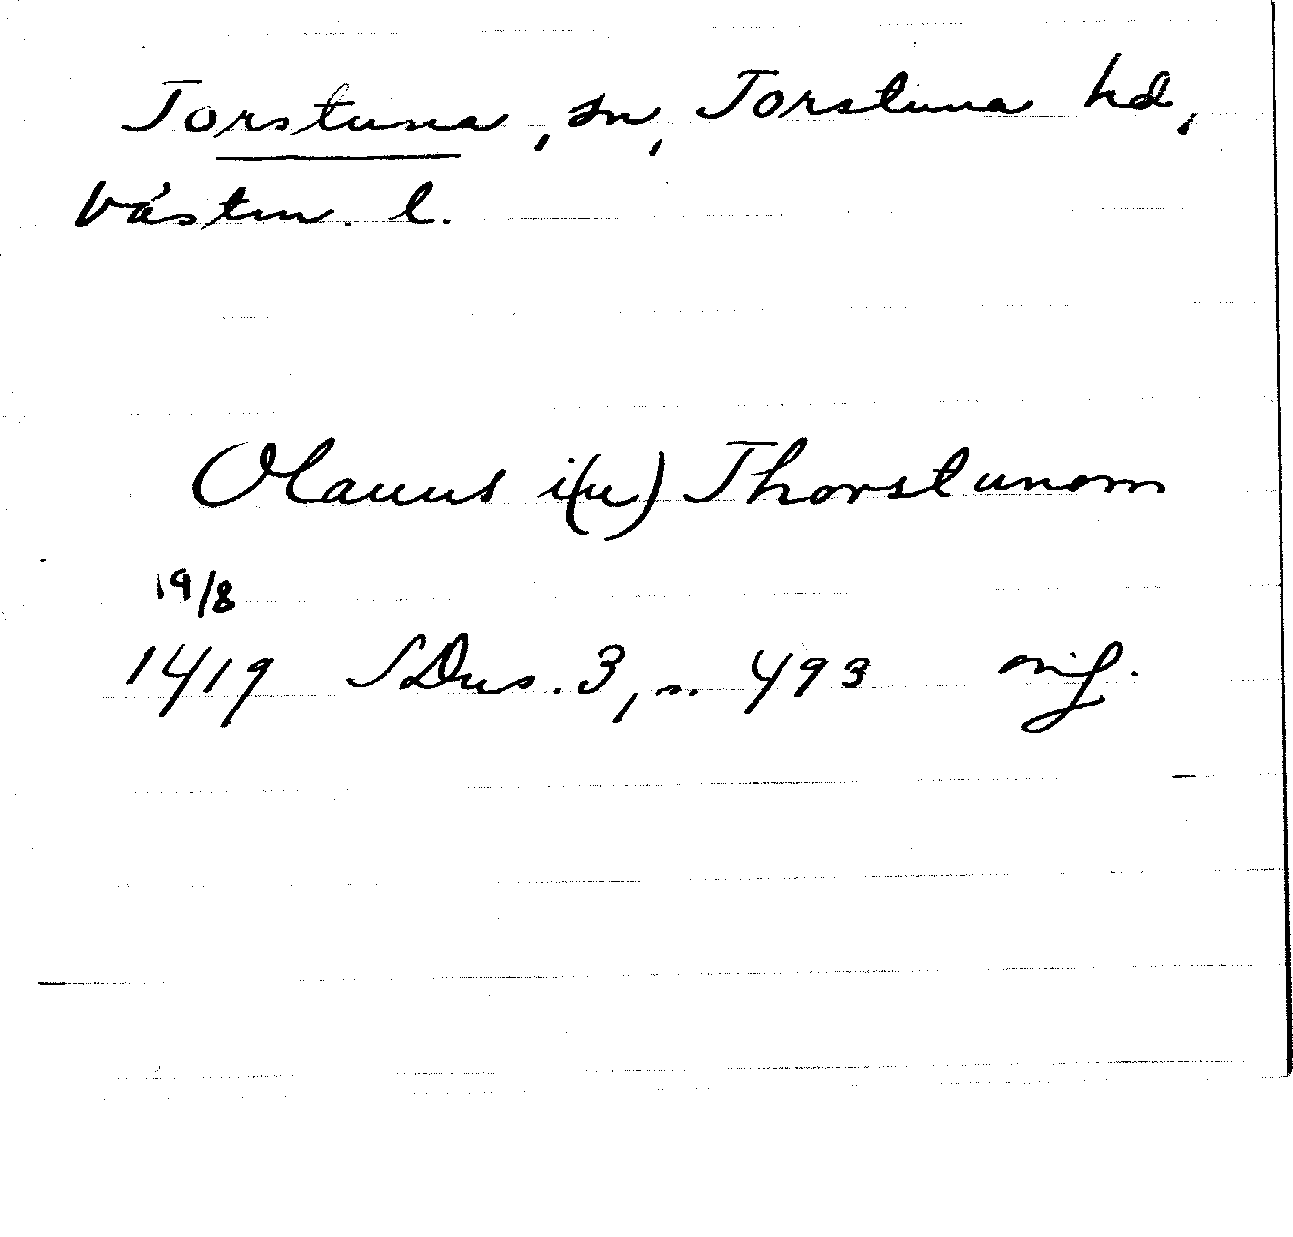 Torstuna, sn, Torstuna hd,
Västm. l.
Olauus i(n) Thorstunom
19/8
1419 SDns. 3, n. 493 orig.